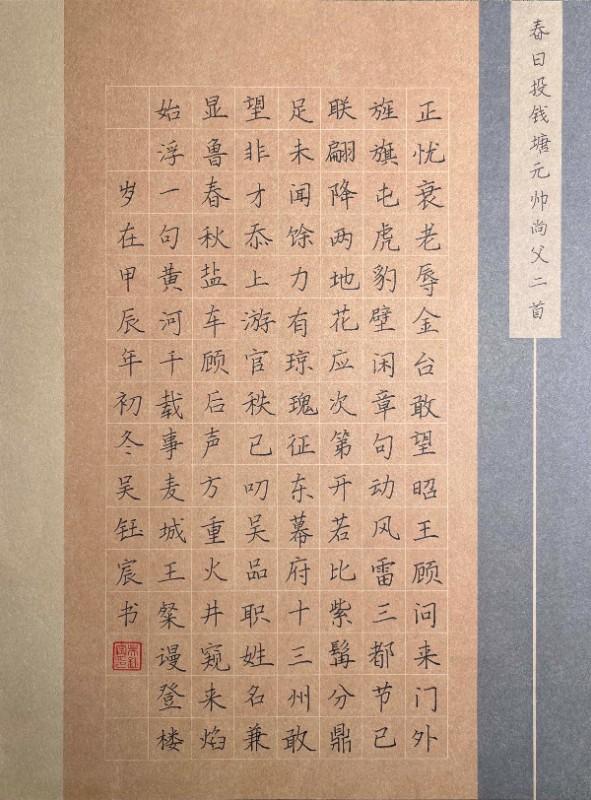 春日投钱塘元帅尚父二首
正忧衰老辱金台敢望昭王顾问来门外
旌旗屯虎豹壁闲章句动风雷三都节已
联翩降两地花应次第开若比紫髯分鼎
足未闻馀力有琼瑰征东幕府十三州敢
望非才忝上游官秩已叨吴品职姓名兼
显鲁春秋盐车顾后声方重火井窥来焰
始浮一句黄河千载事麦城王粲谩登楼
岁在甲辰年初冬吴钰宸书